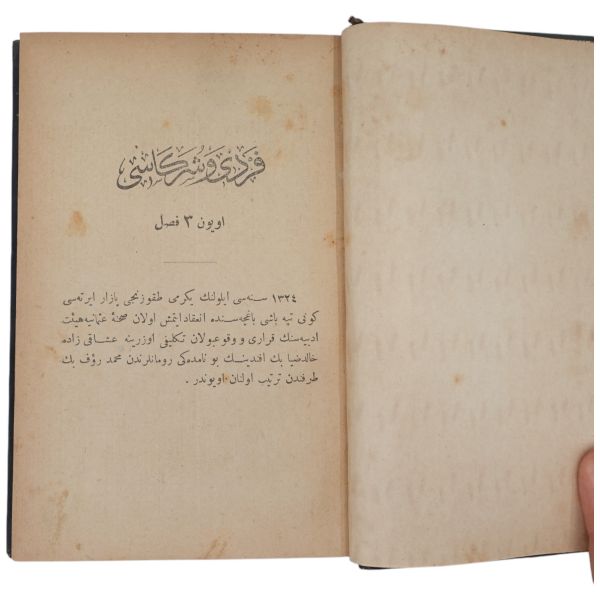 فردی و شرکاسی
اویون ۳ فصل
۱۳۲٤ سنه‌سی ایلولنك یكرمی طقوزنجی پازار ایرته‌سی
كونی تپه باشی باغچه‌سنده انعقاد ایتمش اولان صحنهٔ عثمانیه هیئت
ادبیه‌سنك قراری و وقوعبولان تكلیفی اوزرینه عشاقی زاده
خالد ضیا بك افندینك بو نامده‌كی رومانلرندن محمد رؤف بك
طرفندن ترتیب اولنان اویوندر .